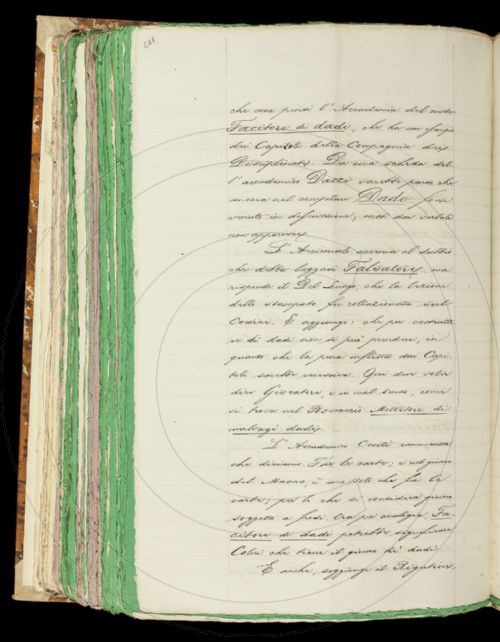 che cosa pensi l'Accademia del modo
Facitore di dadi, che ha un esempio
dei Capitoli della Compagnia dei
Disciplinati. Da una scheda del
l'accademico Dazzi sarebbe parso che
ancora nel compilare Dado fosse
venuto in discussione; ma dai verbali
non apparisce.
L'Arciconsolo accenna al dubbio
che debba leggersi Falsatore, ma
risponde il Del Lungo, che la lezione
dello stampato fu collazionata sul
Codice. E aggiunge: che per costrutto
re di dadi non si può prendere, in
quanto che la pena inflitta dai Capi
toli sarebbe eccessiva. Qui deve voler
dire Giocatore, e in mal senso, come
si trova nel Mettitore di
malvagi dadi.
L'Accademico Conti rammenta
che diciamo Far le carte; e nel giuoco
del Macao, è uno solo che fa le
carte; per lo che si considera giuoco
soggetto a frodi. Ora per analogia, Fa-
citore di dadi potrebbe significare
Colui che tiene il giuoco dei dadi.
E anche, soggiunge il Rigutini,